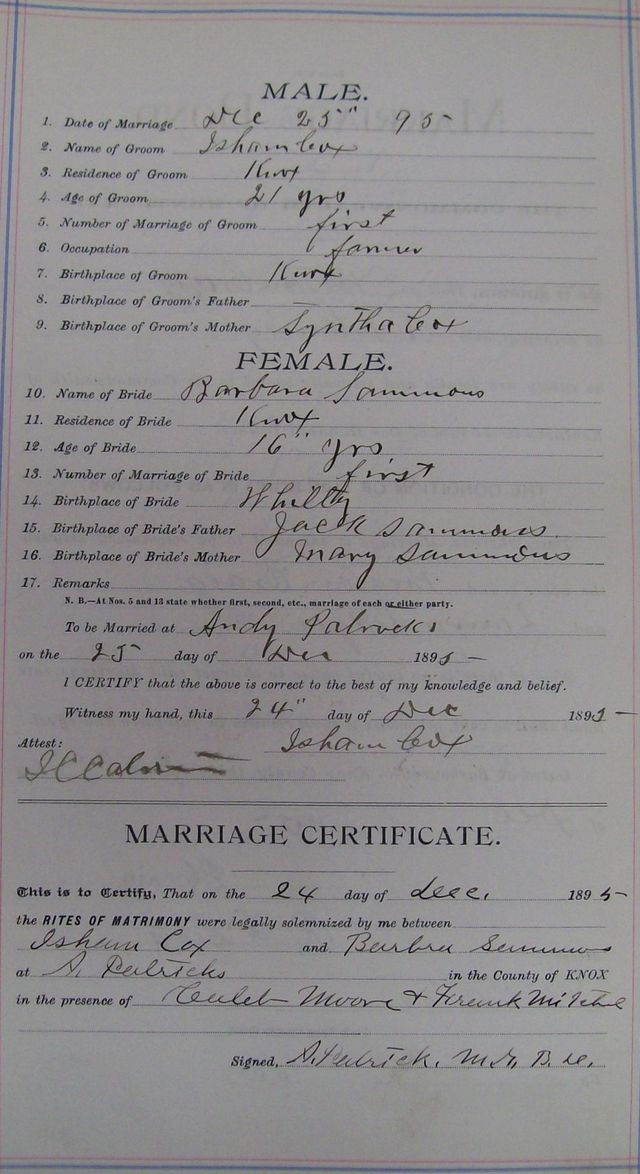 MALE.
1. Date of Marriage Dec 25" 95
2. Name of Groom Isham Cox
3. Residence of Groom Knox
4. Age of Groom 21 yrs
5. Number of Marriage of Groom first
6. Occupation farmer
7. Birthplace of Groom Knox
8. Birthplace of Groom's Father
9. Birthplace of Groom's Mother Syntha Cox
FEMALE.
10. Name of Bride Barbara Sammons
11. Residence of Bride Knox
12. Age of Bride 16" yrs
13. Number of Marriage of Bride first
14. Birthplace of Bride Whitly
15. Birthplace of Bride's Father Jack Sammons
16. Birthplace of Bride's Mother Mary Sammons
17. Remarks
N. B.—At Nos. 5 and 13 state whether first, second, etc., marriage of each or either party.
To be Married at Andy Patricks
on the 25 day of Dec 1895
I CERTIFY that the above is correct to the best of my knowledge and belief.
Witness my hand, this 24" day of Dec 1895
Attest: Isham Cox
MARRIAGE CERTIFICATE.
This is to Certify, That on the 24 day of Dec. 1895
the RITES OF MATRIMONY were legally solemnized by me between
Isham Cox and Barbra Sammons
at A. Patricks in the County of KNOX
in the presence of Caleb Moore & Frank Mitchel
Signed, A. Patrick. M.G.